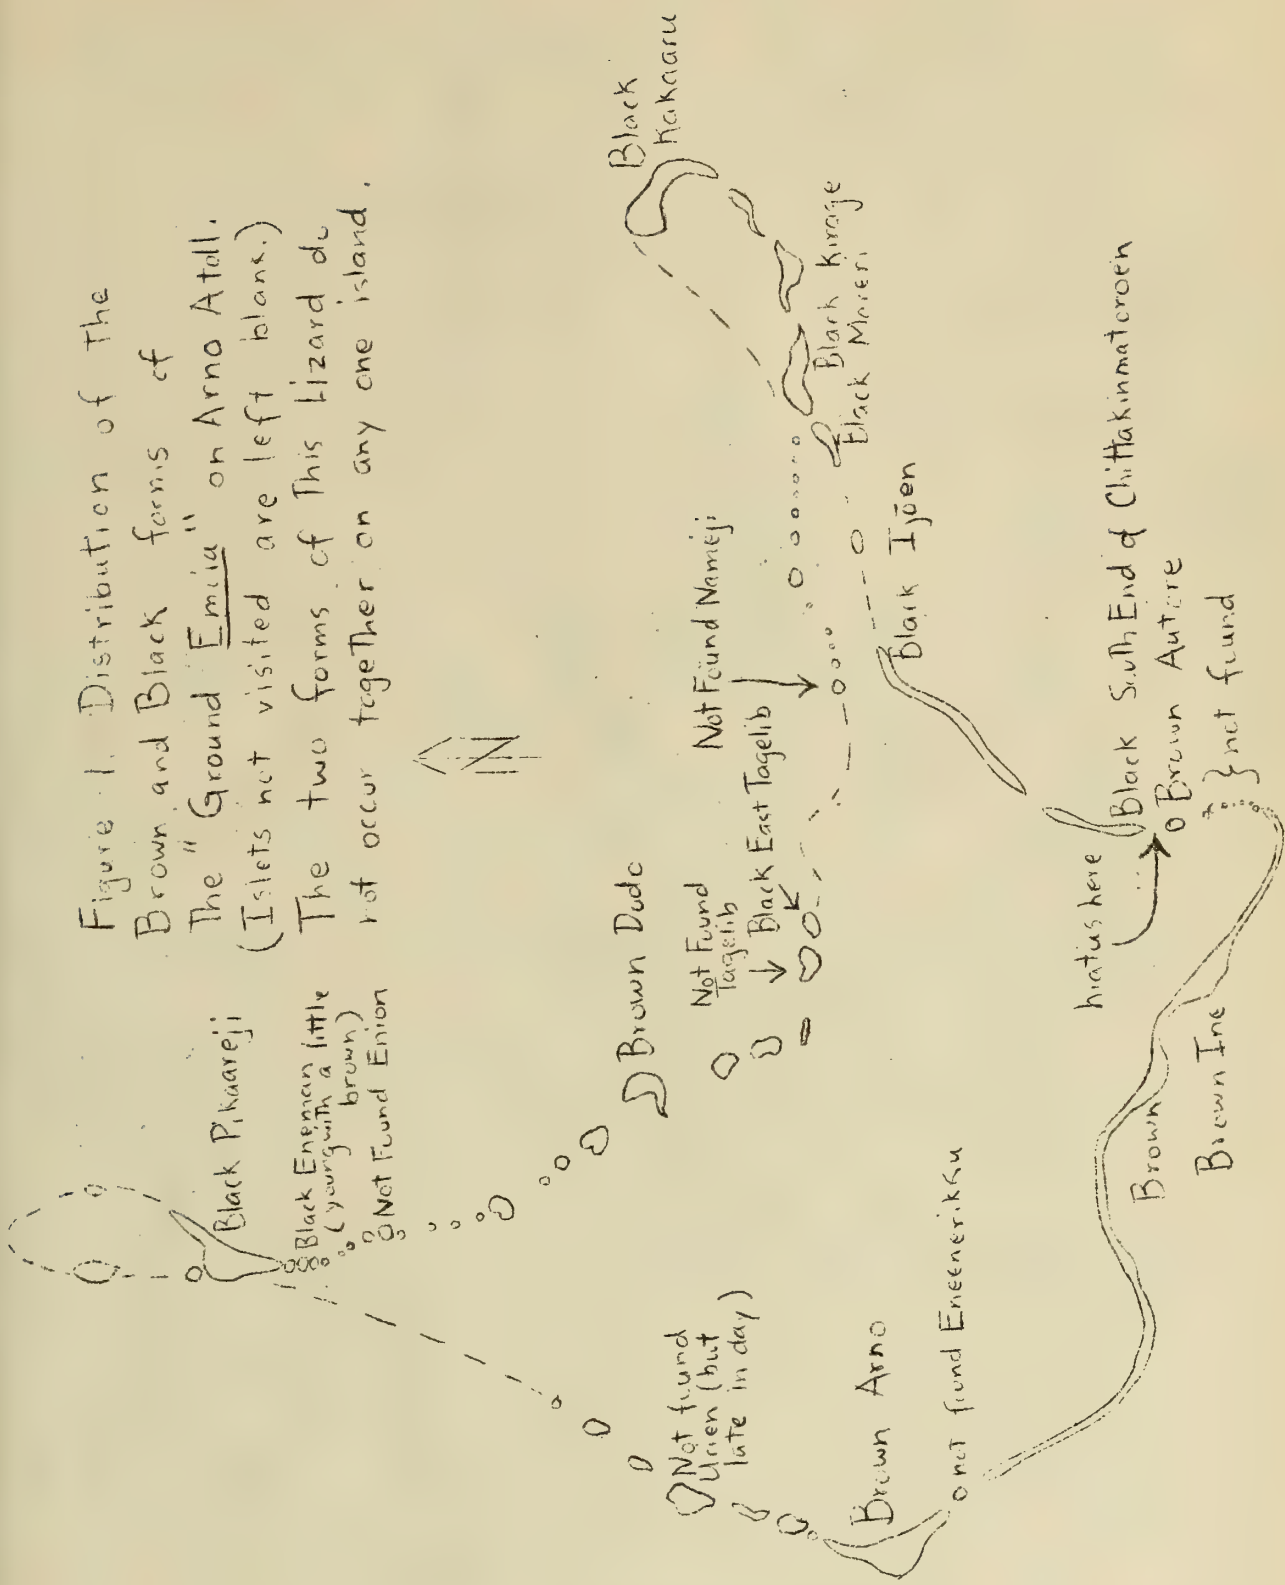 Figure 1. Distribution of the
Brown and Black forms of
The "Ground Emoia" on Arno Atoll.
(Islets not visited are left blank.)
The two forms of This Lizard do
not occur together on any one island.
N
Black Pikaareji
Black Eneman little
(young with a
brown)
Not Found Enion
Brown Dodo
Not Found
Tagelib
Black East Tagelib
Not Found Nameji
Black
Kakaaru
Black Kirage
Black Moreri
Black Ijoen
Black South End of Chittakinmatoroen
Brown Autore
} not found
hiatus here
Brown
Brown Ine
Not found
(but
late in day)
Brown Arno
not found Eneenerikku